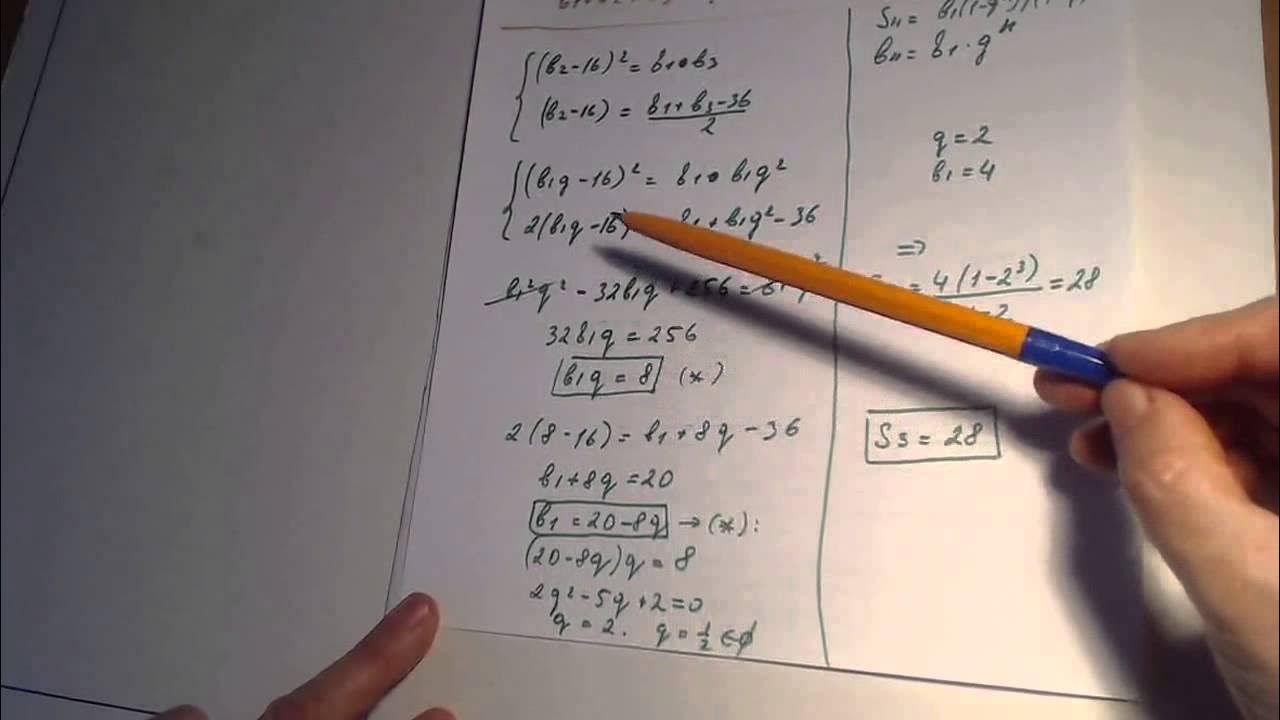 (b₂-16)² = b₁•b₃
(b₂-16) = (b₁+b₃-36)/2
(b₁q-16)² = b₁•b₁q²
2(b₁q-16) b₁+b₁q²-36
b₁²q² - 32b₁q + 256 =
32b₁q = 256
b₁q = 8 (*)
2(8-16) = b₁+8q-36
b₁+8q = 20
b₁ = 20-8q → (*):
(20-8q)q = 8
2q²-5q+2=0
q = 2. q = 1/2 ∈ ∅
Sₙ =
bₙ = b₁·qⁿ
q = 2
b₁ = 4
⇒
= 4(1-2³) = 28
S₃ = 28